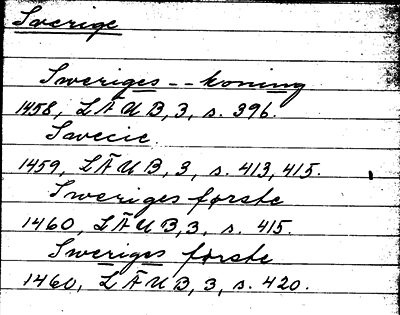 Sverige
Sweriges -- koning
1458, LÄUB, 3, s. 396.
Swecie.
1459, LÄUB, 3, s. 413, 415.
Sweriges første
1460, LÄUB, 3, s. 415.
Sweriges første
1460, LÄUB, 3, s. 420.